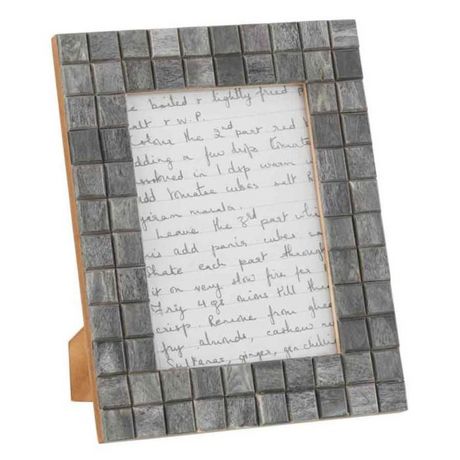 boiled & lightly fried p
salt & W.P.
the 2nd part red
adding a few drps tomato
in 1 dsp warm
add tomatoe cubes salt &
garam masala.
Leave the 3rd part whi
add panir cubes
shake each part through
it on very slow fire for
Fry 4 gt onions till
crisp. Remove from ghee
fry almonds, cashew n
Sultanas, ginger, grn chilli